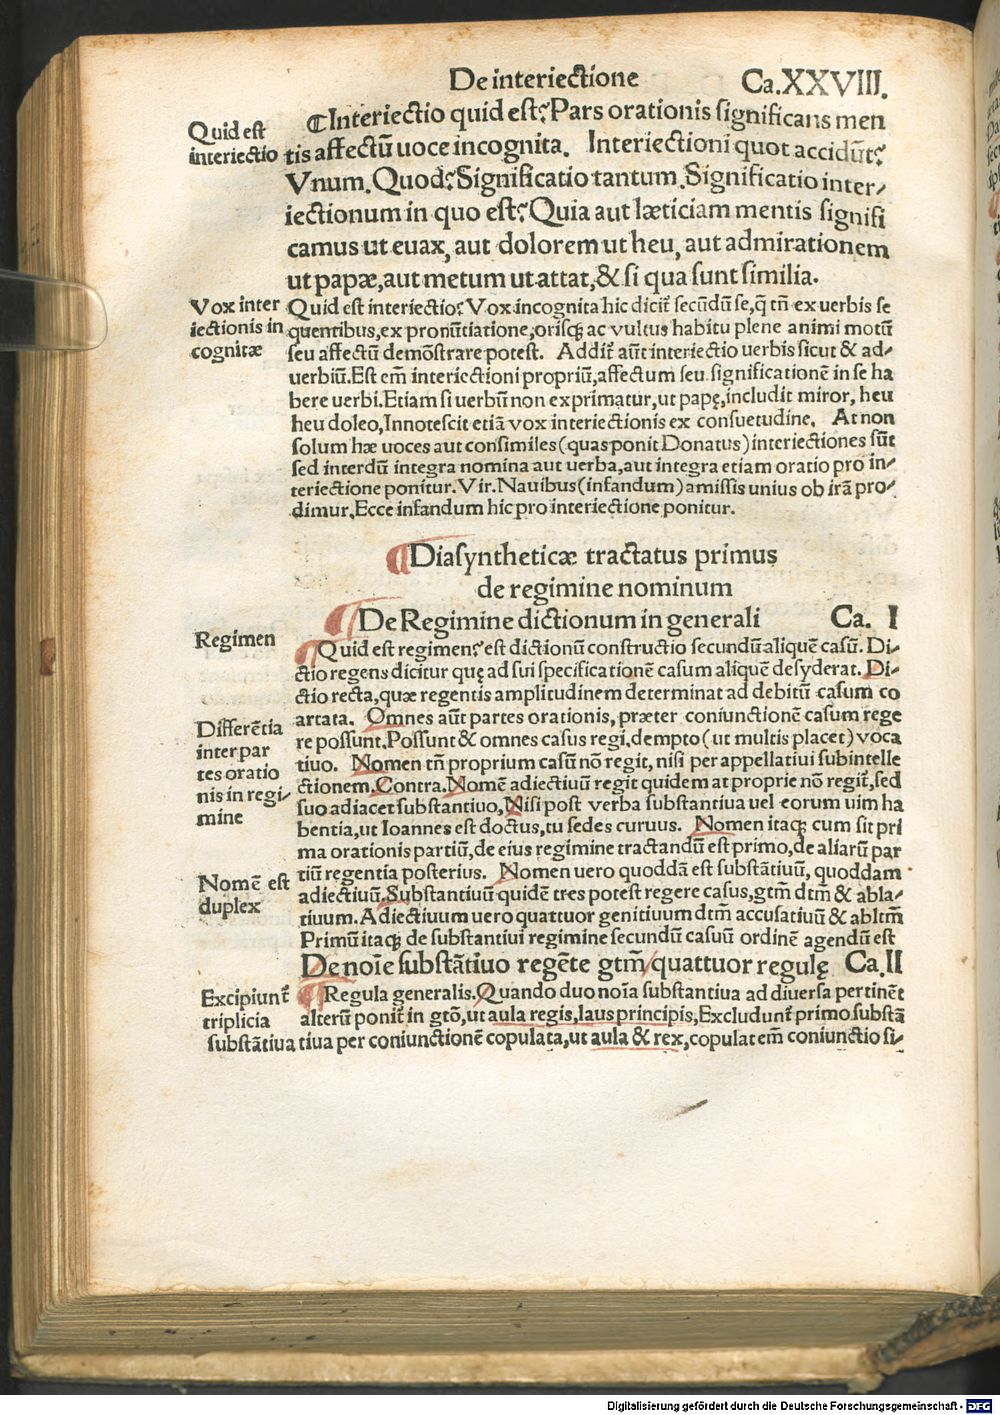 De interiectione Ca.XXVIII.
Quid est
interiectio
⁋Interiectio quid est? Pars orationis significans men
tis affectū uoce incognita. Interiectioni quot accidūt?
Vnum. Quod? Significatio tantum. Significatio inter-
iectionum in quo est? Quia aut læticiam mentis signifi
camus ut euax, aut dolorem ut heu, aut admirationem
ut papæ, aut metum ut attat, & si qua sunt similia.
Vox inter
iectionis in
cognitæ
Quid est interiectio? Vox incognita hic dicit̃ secūdū se, q̃ tñ ex uerbis se
quentibus, ex pronūtiatione, orisqꝫ ac vultus habitu plene animi motū
seu affectū demōstrare potest. Addit̃ aūt interiectio uerbis sicut & ad-
uerbiū. Est em̄ interiectioni propriū, affectum seu significationē in se ha
bere uerbi. Etiam si uerbū non exprimatur, ut papę, includit miror, heu
heu doleo, Innotescit etiā vox interiectionis ex consuetudine. At non
solum hæ uoces aut consimiles (quas ponit Donatus) interiectiones sūt
sed interdū integra nomina aut uerba, aut integra etiam oratio pro in-
teriectione ponitur. Vir. Nauibus (infandum) amissis unius ob irā pro-
dimur. Ecce infandum hic pro interiectione ponitur.
⁋Diasyntheticæ tractatus primus
de regimine nominum
⁋De Regimine dictionum in generali Ca. I
Regimen
⁋Quid est regimen? est dictionū constructio secundū aliquē casū. Di-
ctio regens dicitur quę ad sui specificationē casum aliquē desyderat. Di-
ctio recta, quæ regentis amplitudinem determinat ad debitū casum co
artata. Omnes aūt partes orationis, præter coniunctionē casum rege
re possunt. Possunt & omnes casus regi, dempto (ut multis placet) voca
tiuo. Nomen tñ proprium casū nō regit, nisi per appellatiui subintelle
ctionem. Contra. Nomē adiectiuū regit quidem at proprie nō regit̃, sed
suo adiacet substantiuo, Nisi post verba substantiua uel eorum uim ha
bentia, ut Ioannes est doctus, tu sedes curuus. Nomen itaqꝫ cum sit pri
ma orationis partiū, de eius regimine tractandū est primo, de aliarū par
tiū regentia posterius. Nomen uero quoddā est substātiuū, quoddam
adiectiuū. Substantiuū quidē tres potest regere casus, gtm̄ dtm̄ & abla-
tiuum. Adiectiuum uero quattuor genitiuum dtm̄ accusatiuū & abltm̄
Primū itaqꝫ de substantiui regimine secundū casuū ordinē agendū est
Differētia
inter par
tes oratio
nis in regi-
mine
Nomē est
duplex
De noīe substātiuo regēte gtm̄ quattuor regulę Ca.II
Excipiunt̃
triplicia
substātiua
⁋Regula generalis. Quando duo noīa substantiua ad diuersa pertinēt
alterū ponit̃ in gtō, ut aula regis, laus principis, Excludunt̃ primo substā
tiua per coniunctionē copulata, ut aula & rex, copulat em̄ coniunctio si-
Digitalisierung gefördert durch die Deutsche Forschungsgemeinschaft - DFG